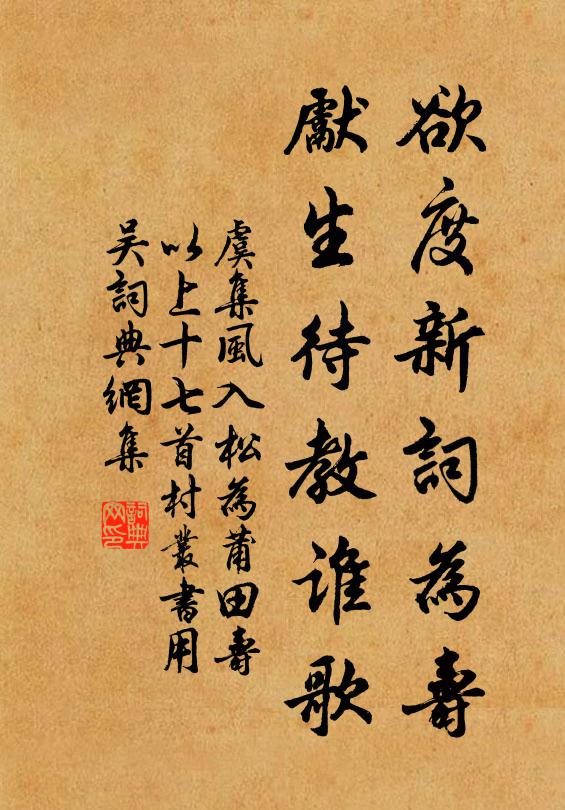 欲度新詞為壽
獻生待教誰歌
虞集風入松為莆田壽
以上十七首村叢書用
吴詞典網集
詞典網印